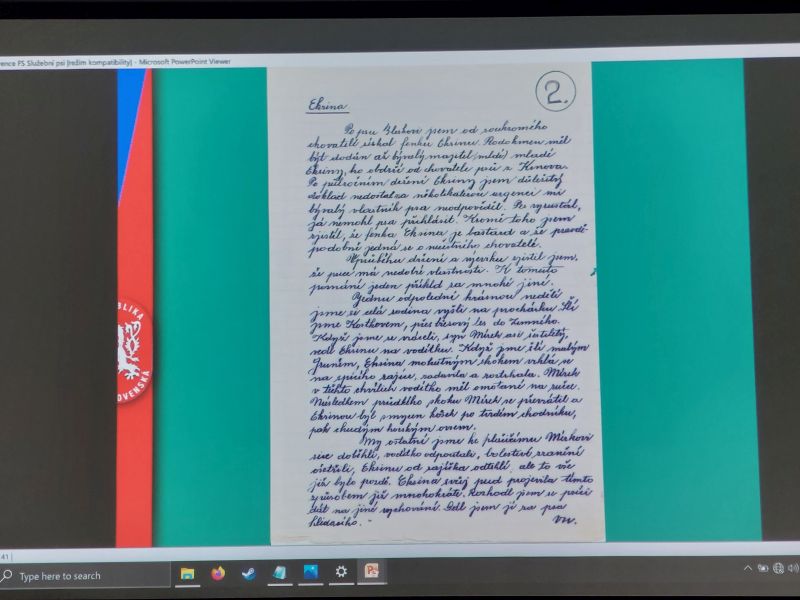 ence PS Služební psi [režim kompatibility] - Microsoft PowerPoint Viewer
2.
Eksina
Po psu Blukovi jsem od soukromého
chovatele získal fenku Eksinu. Rodokmen měl
být dodán až bývalý majitel mladé
Eksiny, ho obdrží od chovatele psů z Kinova.
Po půlročním držení Eksiny jsem důležitý
doklad nedostal za několikaterou urgenci mi
bývalý vlastník psa neodpověděl. Pes vyrůstal,
já nemohl psa přihlásit. Kromě toho jsem
zjistil, že fenka Eksina je bastard a že pravdě-
podobně jedná se o nečestného chovatele.
V průběhu držení a výcviku zjistil jsem,
že má nedobré vlastnosti. K tomuto
poznání jeden příklad za mnohé jiné.
Jednu odpolední krásnou neděli
jsme se celá rodina vyšli na procházku. Šli
jsme přes lesový les do Zemného.
Když jsme se vraceli, syn Mirek asi šestiletý,
vedl Eksinu na vodítku. Když jsme šli malým
Eksina mohutným skokem vrhla se
na spícího zajíce, zadávila a roztrhala. Mirek
v těchto chvílích vodítko měl omotané na ruce.
Následkem prudkého skoku Mirek se převrátil a
Eksinou byl smýkán kousek po tvrdém chodníku,
pak chudým horským ovsem.
My ostatní jsme ke plačícímu Mirkovi
sice doběhli, vodítko odpoutali, bolestivé zranění
ošetřili, Eksinu od zajíčka odtáhli, ale to vše
již bylo pozdě. Eksina svůj pud projevila tímto
způsobem již mnohokráte. Rozhodl jsem se
dát na jiné vychování. Dal jsem ji za psa
hlídacího.
BLIKA
OVENSKÁ
41
Type here to search